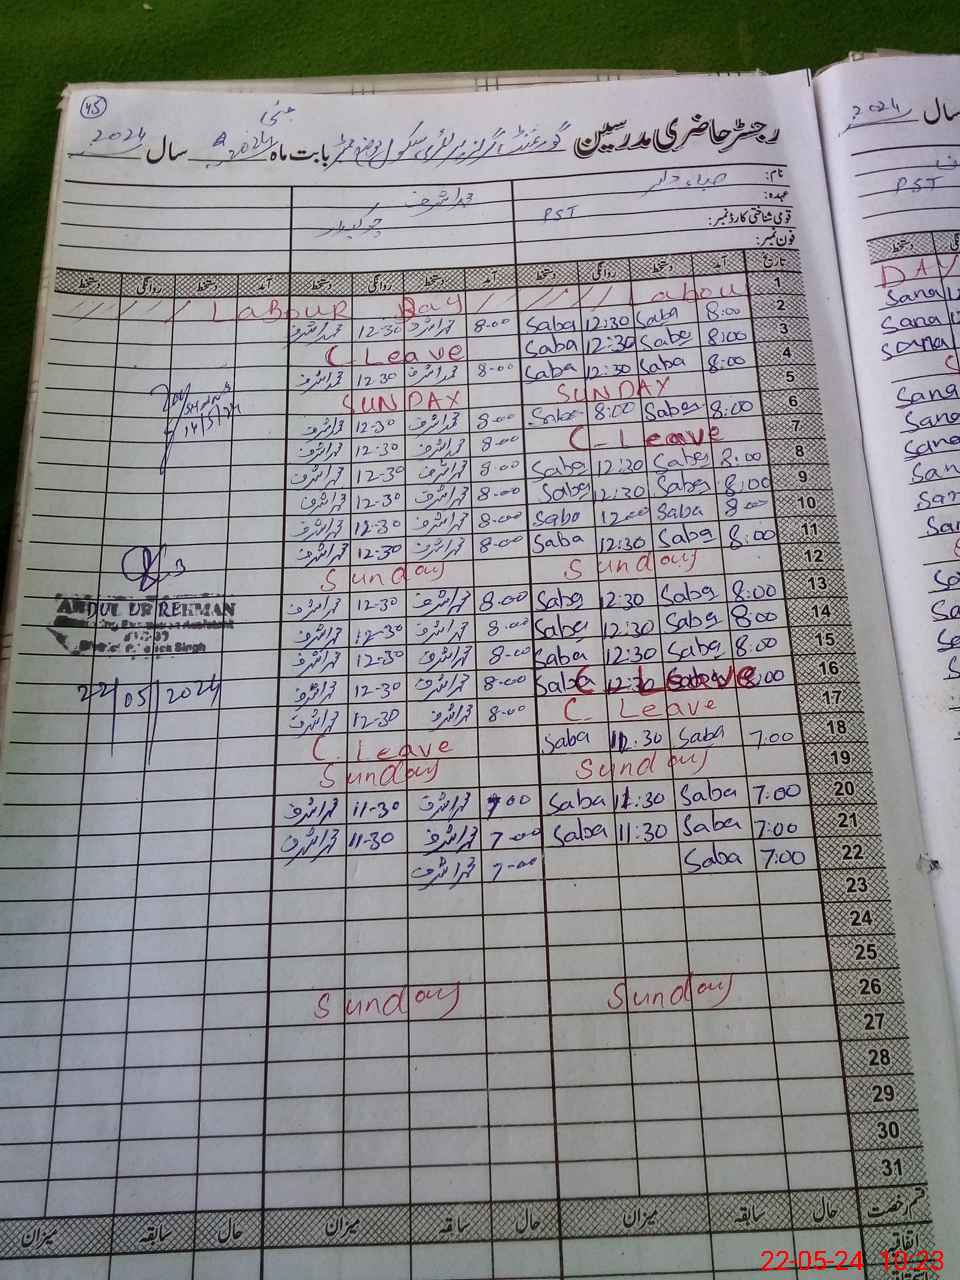 45
رجسٹر حاضری مدرسین گورنمنٹ گرلز پرائمری سکول بابت ماہ مئی 2024 سال 2024
نام:
عہدہ: PST چوکیدار
قومی شناختی کارڈ نمبر:
فون نمبر:
تاریخ آمد دستخط روانگی دستخط آمد دستخط روانگی دستخط آمد دستخط روانگی دستخط
1 Labou LABOUR Day
2 8:00 Saba 12:30 Saba 8-00 محمد اشرف 12-30 محمد اشرف
3 8:00 Sabe 12:30 Saba C. Leave
4 8:00 Saba 12:30 Saba 8-00 محمد اشرف 12-30 محمد اشرف
5 SUNDAY SUNDAY
6 8:00 Saba 8:00 Saba 8-00 محمد اشرف 12-30 محمد اشرف
7 C. Leave 8-00 محمد اشرف 12-30 محمد اشرف
8 8:00 Saba 12:30 Saba 8-00 محمد اشرف 12-30 محمد اشرف
9 8:00 Saba 12:30 Saba 8-00 محمد اشرف 12-30 محمد اشرف
10 8:00 Saba 12:00 Saba 8-00 محمد اشرف 12-30 محمد اشرف
11 8:00 Saba 12:30 Saba 8-00 محمد اشرف 12-30 محمد اشرف
12 Sunday Sunday
13 8:00 Saba 12:30 Saba 8-00 محمد اشرف 12-30 محمد اشرف
14 8:00 Saba 12:30 Saba 8-00 محمد اشرف 12-30 محمد اشرف
15 8:00 Saba 12:30 Saba 8-00 محمد اشرف 12-30 محمد اشرف
16 8:00 12:30 Saba C. Leave 8-00 محمد اشرف 12-30 محمد اشرف
17 C. Leave 8-00 محمد اشرف 12-30 محمد اشرف
18 7:00 Saba 12:30 Saba C. Leave
19 Sunday Sunday
20 7:00 Saba 11:30 Saba 7-00 محمد اشرف 11-30 محمد اشرف
21 7:00 Saba 11:30 Saba 7-00 محمد اشرف 11-30 محمد اشرف
22 7:00 Saba 7-00 محمد اشرف
23
24
25
26 Sunday Sunday
27
28
29
30
31
قسم رخصت حال سابقہ میزان حال سابقہ میزان حال سابقہ میزان
اتفاقی
14/5/24
ABDUL UR REHMAN
Assistant
Sindh
22/05/2024
سال 2024
PST
دستخط
DAY
Sana
Sana
Sana
Sana
Sana
Sana
22-05-24 10:23